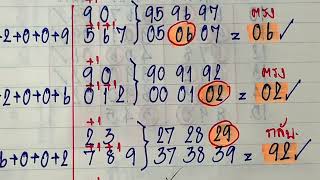 9 0 } 95 96 97 ตรง
+1 +1
-2+0+0+9 5 6 7 } 05 06 07 = 06 ✓
+1
9 0 } 90 91 92 ตรง
+1 +1
-2+0+0+6 0 1 2 } 00 01 02 = 02 ✓
+1
2 3 } 27 28 29 กลับ
+1 +1
6+0+0+2 7 8 9 } 37 38 39 = 92 ✓
+1